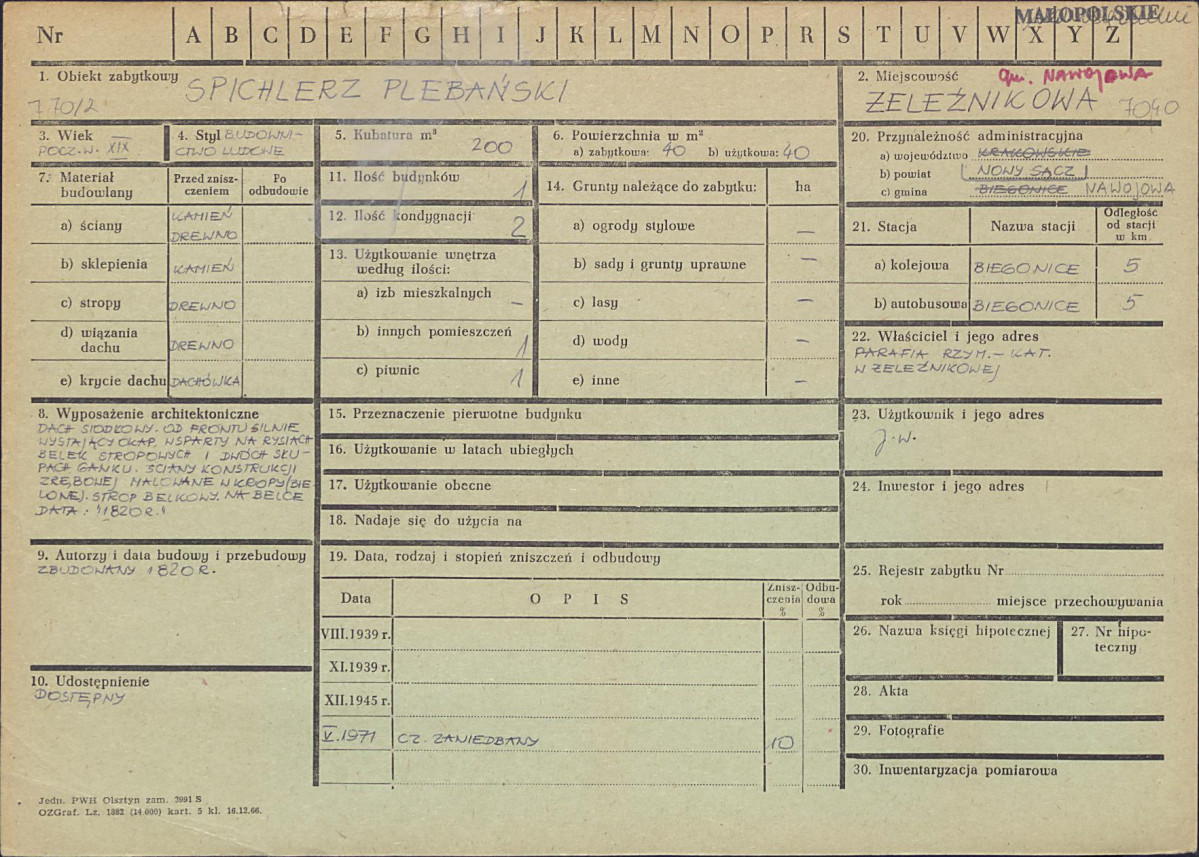 MAŁOPOLSKIE
Nr A B C D E F G H I J K L M N O P R S T U V W X Y Z
1. Obiekt zabytkowy
SPICHLERZ PLEBAŃSKI
770/2
2. Miejscowość gm. NAWOJOWA
ŻELEŹNIKOWA 7040
3. Wiek XIX
POCZ. W.
4. Styl BUDOWNI-
CTWO LUDOWE
5. Kubatura m³
200
6. Powierzchnia w m²
a) zabytkowa: 40 b) użytkowa: 40
7. Materiał budowlany
Przed znisz-
czeniem
Po
odbudowie
a) ściany KAMIEŃ
DREWNO
b) sklepienia KAMIEŃ
c) stropy DREWNO
d) wiązania
dachu DREWNO
e) krycie dachu DACHÓWKA
8. Wyposażenie architektoniczne
DACH SIODŁOWY. OD FRONTU SILNIE
WYSTAJĄCY OKAP, WSPARTY NA RYSIACH
BELEK STROPOWYCH I DWÓCH SŁU-
PACH GANKU. ŚCIANY KONSTRUKCJI
ZRĘBOWEJ MALOWANE W KROPY (BIE
LONE). STROP BELKOWY. NA BELCE
DATA: "1820 R."
9. Autorzy i data budowy i przebudowy
ZBUDOWANY 1820 R.
10. Udostępnienie
DOSTĘPNY
11. Ilość budynków
1
12. Ilość kondygnacji
2
13. Użytkowanie wnętrza
według ilości:
a) izb mieszkalnych –
b) innych pomieszczeń
1
c) piwnic 1
14. Grunty należące do zabytku: ha
a) ogrody stylowe –
b) sady i grunty uprawne –
c) lasy –
d) wody –
e) inne –
15. Przeznaczenie pierwotne budynku
16. Użytkowanie w latach ubiegłych
17. Użytkowanie obecne
18. Nadaje się do użycia na
19. Data, rodzaj i stopień zniszczeń i odbudowy
Data OPIS Znisz-
czenia
%
Odbu-
dowa
%
VIII.1939 r.
XI.1939 r.
XII.1945 r.
V.1971 CZ. ZANIEDBANY 10
20. Przynależność administracyjna
a) województwo KRAKOWSKIE
b) powiat NOWY SĄCZ
c) gmina BIEGONICE NAWOJOWA
21. Stacja Nazwa stacji Odległość
od stacji
w km.
a) kolejowa BIEGONICE 5
b) autobusowa BIEGONICE 5
22. Właściciel i jego adres
PARAFIA RZYM.-KAT.
W ŻELEŹNIKOWEJ
23. Użytkownik i jego adres
J.w.
24. Inwestor i jego adres
25. Rejestr zabytku Nr
rok miejsce przechowywania
26. Nazwa księgi hipotecznej
27. Nr hipo-
teczny
28. Akta
29. Fotografie
30. Inwentaryzacja pomiarowa
Jedn. PWH Olsztyn zam. 3991 S
OZGraf. Lz. 1882 (14.000) kart. 5 kl. 16.12.66.